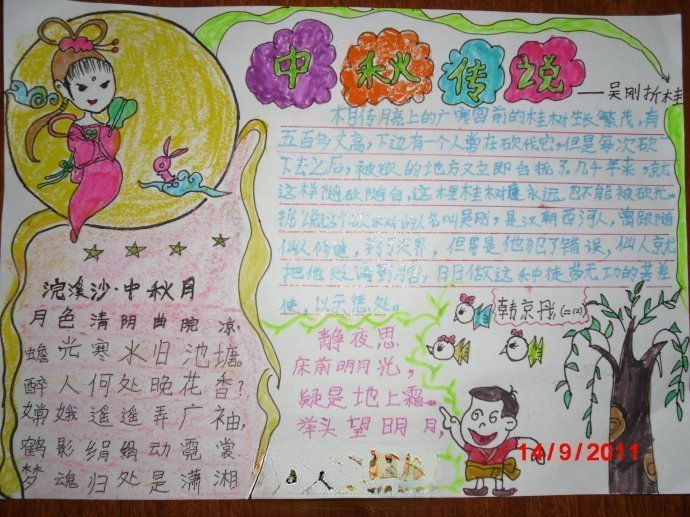 中秋传说
——吴刚折桂
相传月亮上的广寒宫前的桂树生长繁茂,有
五百多丈高,下边有一个人常在砍伐它,但是每次砍
下去之后,被砍的地方又立即合拢了。几千年来,就
这样随砍随合,这棵桂树永远也不能被砍光。
据说这个砍树的人名叫吴刚,是汉朝西河人,曾跟随
仙人修道,到了天界,但是他犯了错误,仙人就
把他贬谪到,日日做这种徒劳无功的苦差
使,以示惩处。
韩京丹(二(2)
浣溪沙·中秋月
月色清阴曲院凉,
蟾光寒水旧池塘。
醉人何处晚花香?
嫦娥遥遥弄广袖,
鹤影绢娟动霓裳
梦魂归处是潇湘
静夜思
床前明月光,
疑是地上霜。
举头望明月,
14/9/2011